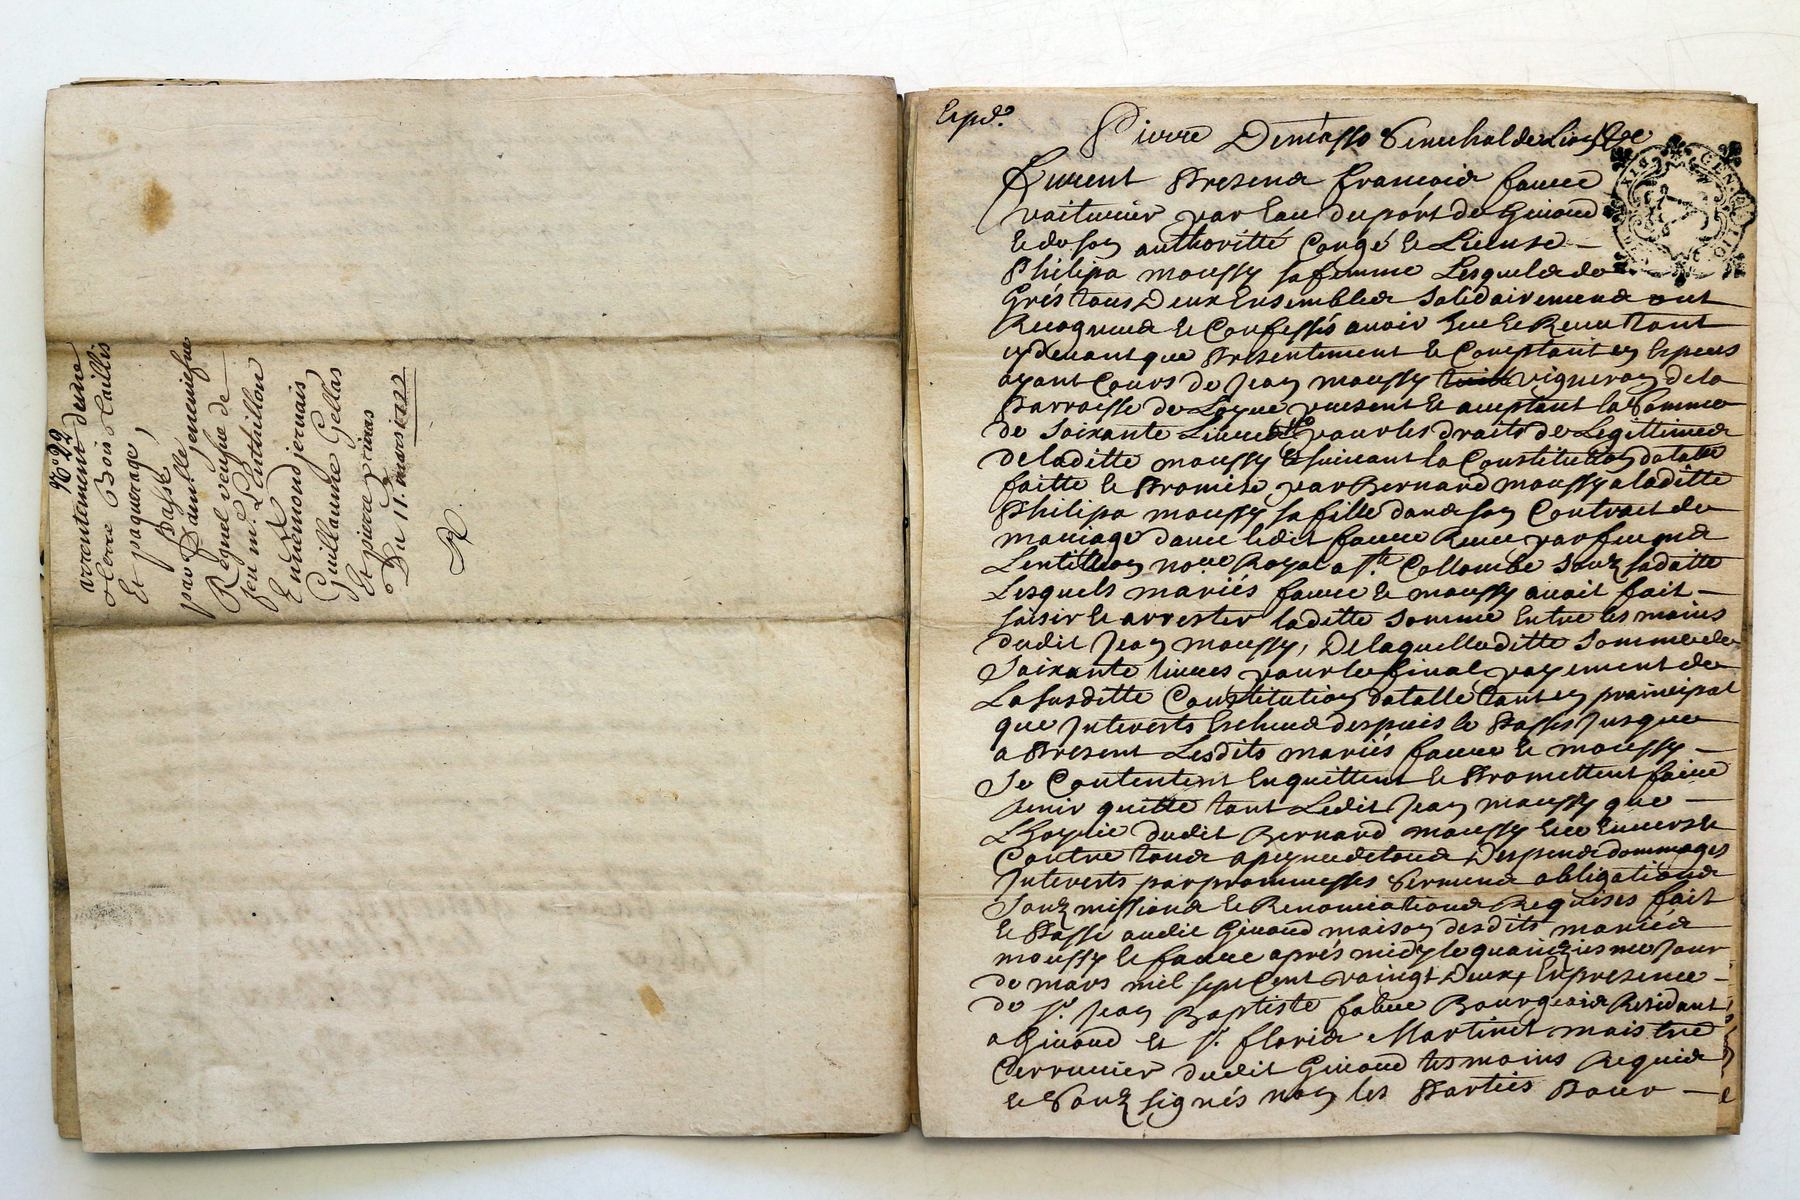 N° 22
parentement d'une
terre Bois taillis
Et paquerage,
passé
par Damlle jeanne
Regnel veufue de
feu mr. Lentaillon
Et
Enniemond jernais
Guillaume Gellas
et pierre
Du 11. mars 1722
Expd.
Pierre Demasso Senechal de Lion
furent Presens francois faure
voiturier par eau du port de Giuord
et de son authoritté Congé et License
Philipa moussy sa femme Lesquels de
Grés tous Deux Ensembles Solidairement ont
Recognus et Confessés auoir Eue et Receu tant
cydeuant que Presentement et Comptant en Especes
ayant Cours de Jean moussy vigneron de la
Parroisse de present et aceptant la Somme
de Soixante Liures pour les droits de Legittimes
de laditte moussy suiuant la Constitution
faitte et Promise par Bernard moussy a laditte
Philipa moussy sa fille dans son Contrat de
mariage auec ledit faure Receu par feu me
Lentillon nore Royal a Ste Collombe Souz sa datte
Lesquels mariés faure et moussy auoit fait
saisir et arrester laditte Somme Entre les mains
dudit Jean moussy, De laquelle ditte Somme de
Soixante liures pour le final payement de
La Susditte Constitution tant en prainsipal
que Interests Escheus despuis le Passé Jusques
a Present Lesdits mariés faure et moussy
Se Contentent Enquittent et Promettent faire
tenir quitte tant Ledit Jean moussy que
L'hoyrie dudit Bernard moussy Eue Enuers et
Contre tous a peyne de tous Despens dommages
Interests par promesses Serments obligations
Souzmissions et Renonciations Requises fait
et Passé audit Giuord maison desdits mariés
moussy et faure aprés midy le quainziesme Jour
de mars mil sept Cent vaingt Deux, En presence
de sr. Jean Baptiste fabre Bourgeois Residant
a Giuord et sr. floris Martinet maistre
Cerrurier dudit Giuord tesmoins Requis
et Souz signés non les Parties Pour